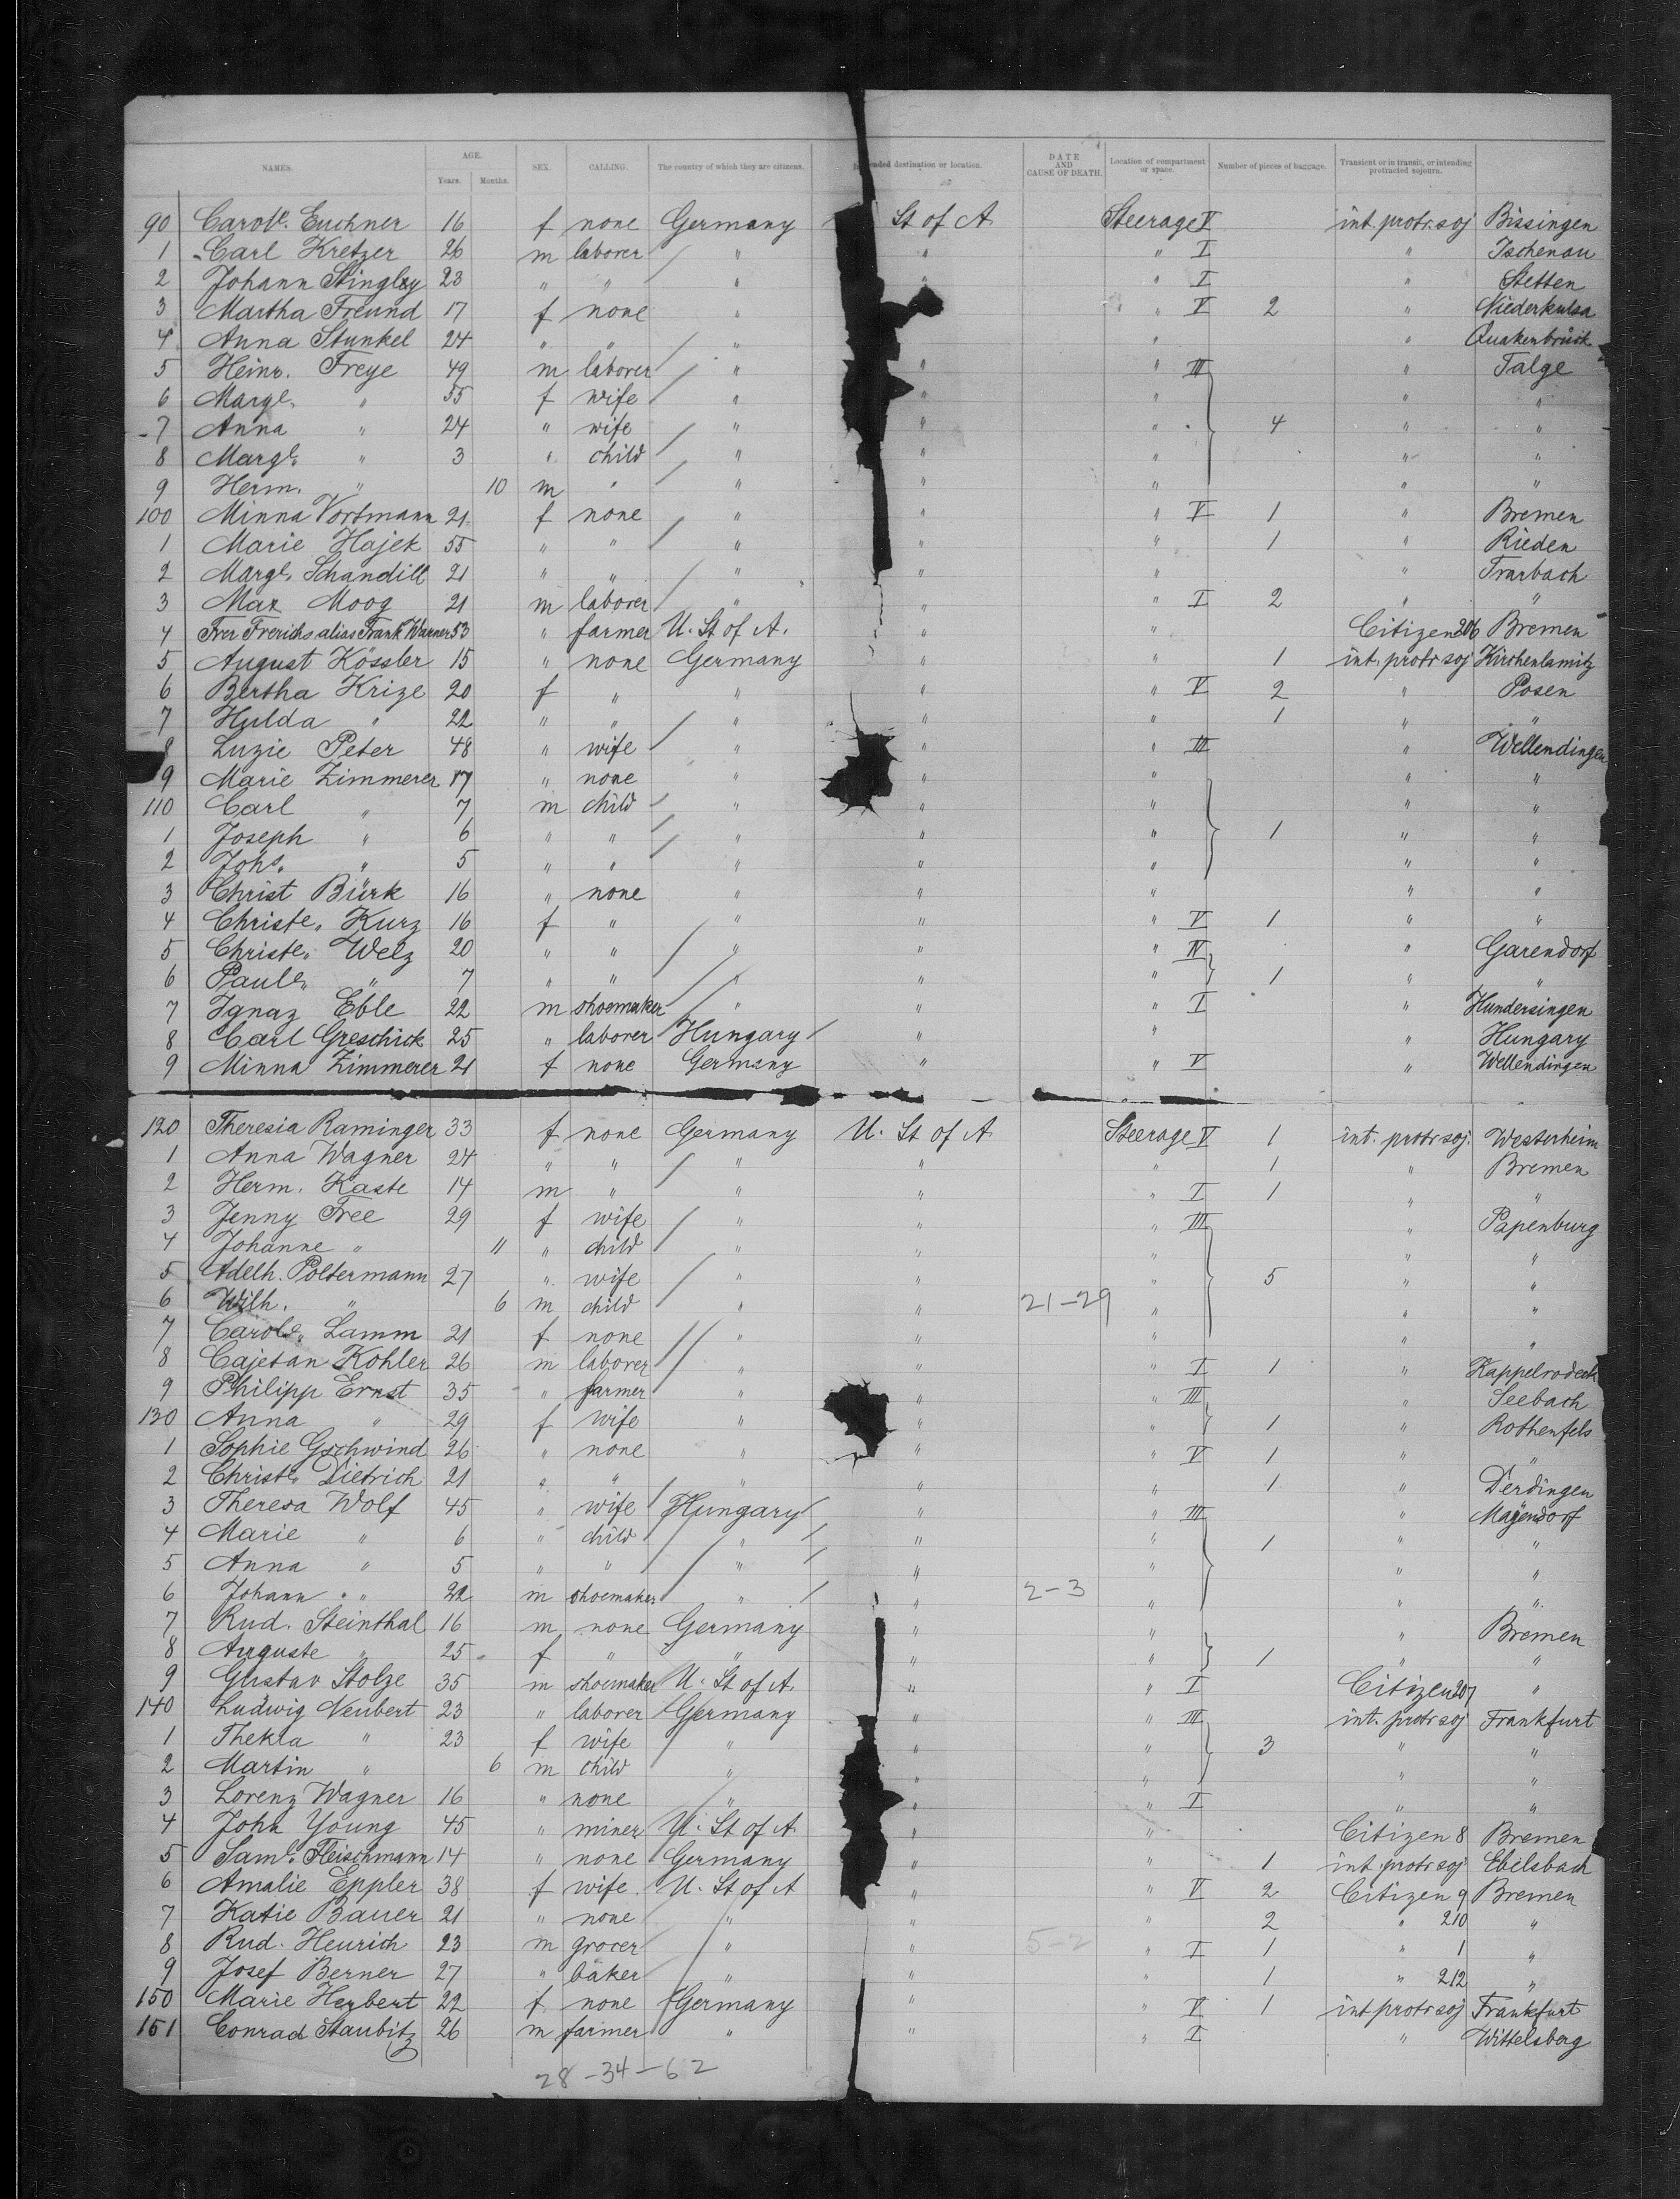 NAMES. AGE. Years. Months. SEX. CALLING. The country of which they are citizens. Intended destination or location. DATE AND CAUSE OF DEATH. Location of compartment or space. Number of pieces of baggage. Transient or in transit, or intending protracted sojourn.
90 Carole. Euchner 16 f none Germany St of A Steerage V int. protr. soj Bissingen
1 Carl Kretzer 26 m laborer " " " I " Ischenau
2 Johann Stingley 23 " " " " " I " Stetten
3 Martha Freund 17 f none " " V 2 " Niederkulsa
4 Anna Stunkel 24 " " " " " Quakenbrück
5 Heinr. Freye 49 m laborer " " " III " Talge
6 Margl. " 55 f wife " " " " "
7 Anna " 24 " wife " " " 4 " "
8 Margl. " 3 " child " " " " "
9 Herm. " 10 m " " " " " "
100 Minna Vortmann 21 f none " " " V 1 " Bremen
1 Marie Hajek 55 " " " " " 1 " Rieden
2 Margl. Schandill 21 " " " " " " Trarbach
3 Max Moog 21 m laborer " " " I 2 " "
4 Frer Frerichs alias Frank Warner 53 " farmer U. St of A. " " Citizen 206 Bremen
5 August Kössler 15 " none Germany " " 1 int. protr soj Kirchenlamitz
6 Bertha Krize 20 f " " " " V 2 " Posen
7 Hulda " 22 " " " " " 1 " "
8 Luzie Peter 48 " wife " " " III " Wellendingen
9 Marie Zimmerer 17 " none " " " " "
110 Carl " 7 m child " " " " "
1 Joseph " 6 " " " " " 1 " "
2 Johs. " 5 " " " " " " "
3 Christ Bürk 16 " none " " " " "
4 Christe. Kurz 16 f " " " " V 1 " "
5 Christe. Welz 20 " " " " " IV " Garendorf
6 Paule. " 7 " " " " " 1 " "
7 Ignaz Eble 22 m shoemaker " " " I " Hundersingen
8 Carl Greschick 25 " laborer Hungary " " " Hungary
9 Minna Zimmerer 21 f none Germany " " V " Wellendingen
120 Theresia Raminger 33 f none Germany U. St of A Steerage V 1 int. protr soj. Westerheim
1 Anna Wagner 24 " " " " " 1 " Bremen
2 Herm. Kaste 14 m " " " " I 1 " "
3 Jenny Free 29 f wife " " " III " Papenburg
4 Johanne " 11 " child " " " " "
5 Adelh. Poltermann 27 " wife " " " 5 " "
6 Wilh. " 6 m child " " 21-29 " " "
7 Carole. Lamm 21 f none " " " " "
8 Cajetan Kohler 26 m laborer " " " I 1 " Kappelrodeck
9 Philipp Ernst 35 " farmer " " " III " Seebach
130 Anna " 29 f wife " " " 1 " Rothenfels
1 Sophie Gschwind 26 " none " " " V 1 " "
2 Christe. Dietrich 21 " " " " " 1 " Derdingen
3 Theresa Wolf 45 " wife Hungary " " III " Magendorf
4 Marie " 6 " child " " " 1 " "
5 Anna " 5 " " " " " " "
6 Johann " 22 m shoemaker " " 2-3 " " "
7 Rud. Steinthal 16 m none Germany " " " Bremen
8 Auguste " 25 f " " " " 1 " "
9 Gustav Stolze 35 m shoemaker U. St of A. " " I Citizen 207 "
140 Ludwig Neubert 23 " laborer Germany " " III int. protr soj Frankfurt
1 Thekla " 23 f wife " " " 3 " "
2 Martin " 6 m child " " " " "
3 Lorenz Wagner 16 " none " " " I " "
4 John Young 45 " miner U. St of A " " Citizen 8 Bremen
5 Saml. Fleischmann 14 " none Germany " " 1 int. protr soj Ebelsbach
6 Amalie Eppler 38 f wife U. St of A " " V 2 Citizen 9 Bremen
7 Katie Bauer 21 " none " " " 2 " 210 "
8 Rud. Heurich 23 m grocer " " 5-2 " I 1 " 1 "
9 Josef Berner 27 " baker " " " 1 " 212 "
150 Marie Herbert 22 f none Germany " " V 1 int protr soj Frankfurt
151 Conrad Staubitz 26 m farmer " " " I " Wittelsberg
28-34-62